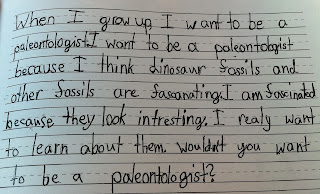 When I grow up I want to be a
paleontologist.I want to be a paleontologist
because I think dinosaur fossils and
other fossils are fascanating.I am fascinated
because they look intresting. I realy want
to learn about them. wouldn't you want
to be a paleontologist?